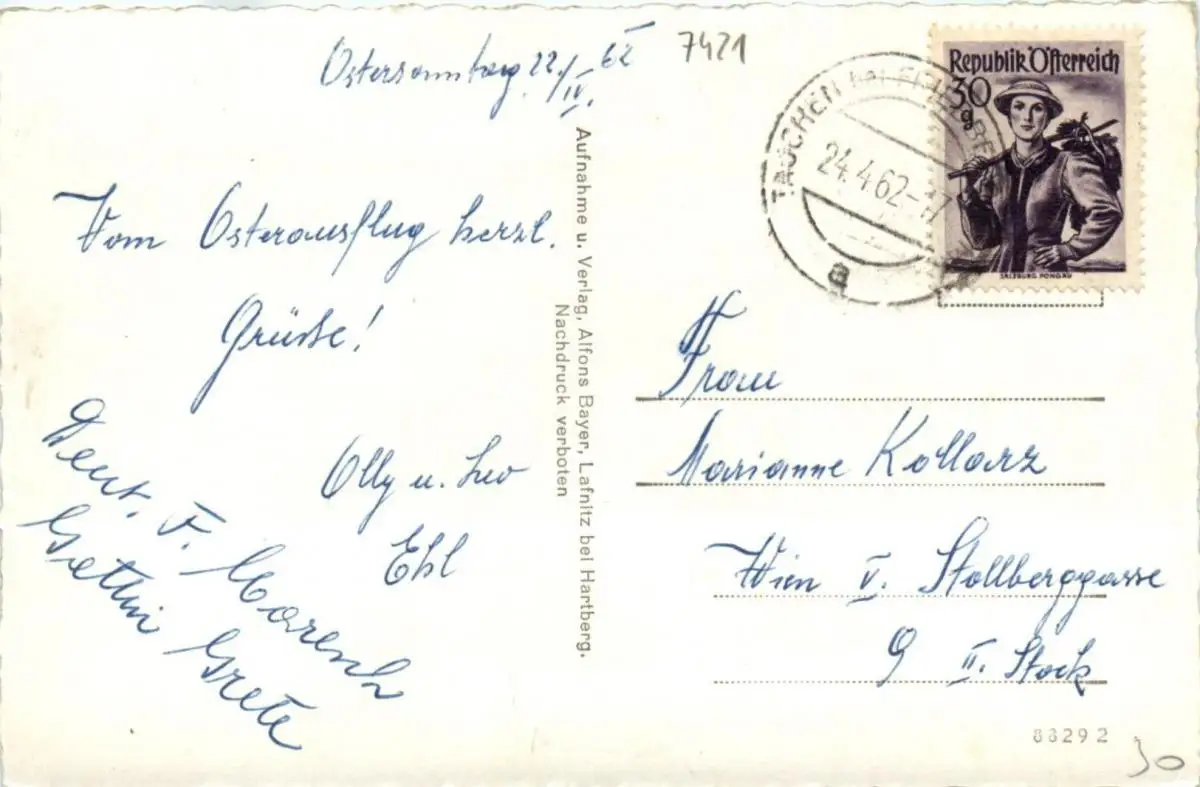 Ostersonntag 22./IV. 62
7421
Vom Osterausflug herzl.
Grüsse!
Olly u. Leo
Ehl
F. Maresch
Gattin Grete
Aufnahme u. Verlag, Alfons Bayer, Lafnitz bei Hartberg.
Nachdruck verboten
TAUCHEN bei
24.4.62-17
a
Republik Österreich
30
g
SALZBURG PONGAU
Frau
Marianne Kollarz
Wien V. Stollberggasse
9 II. Stock
88292
30